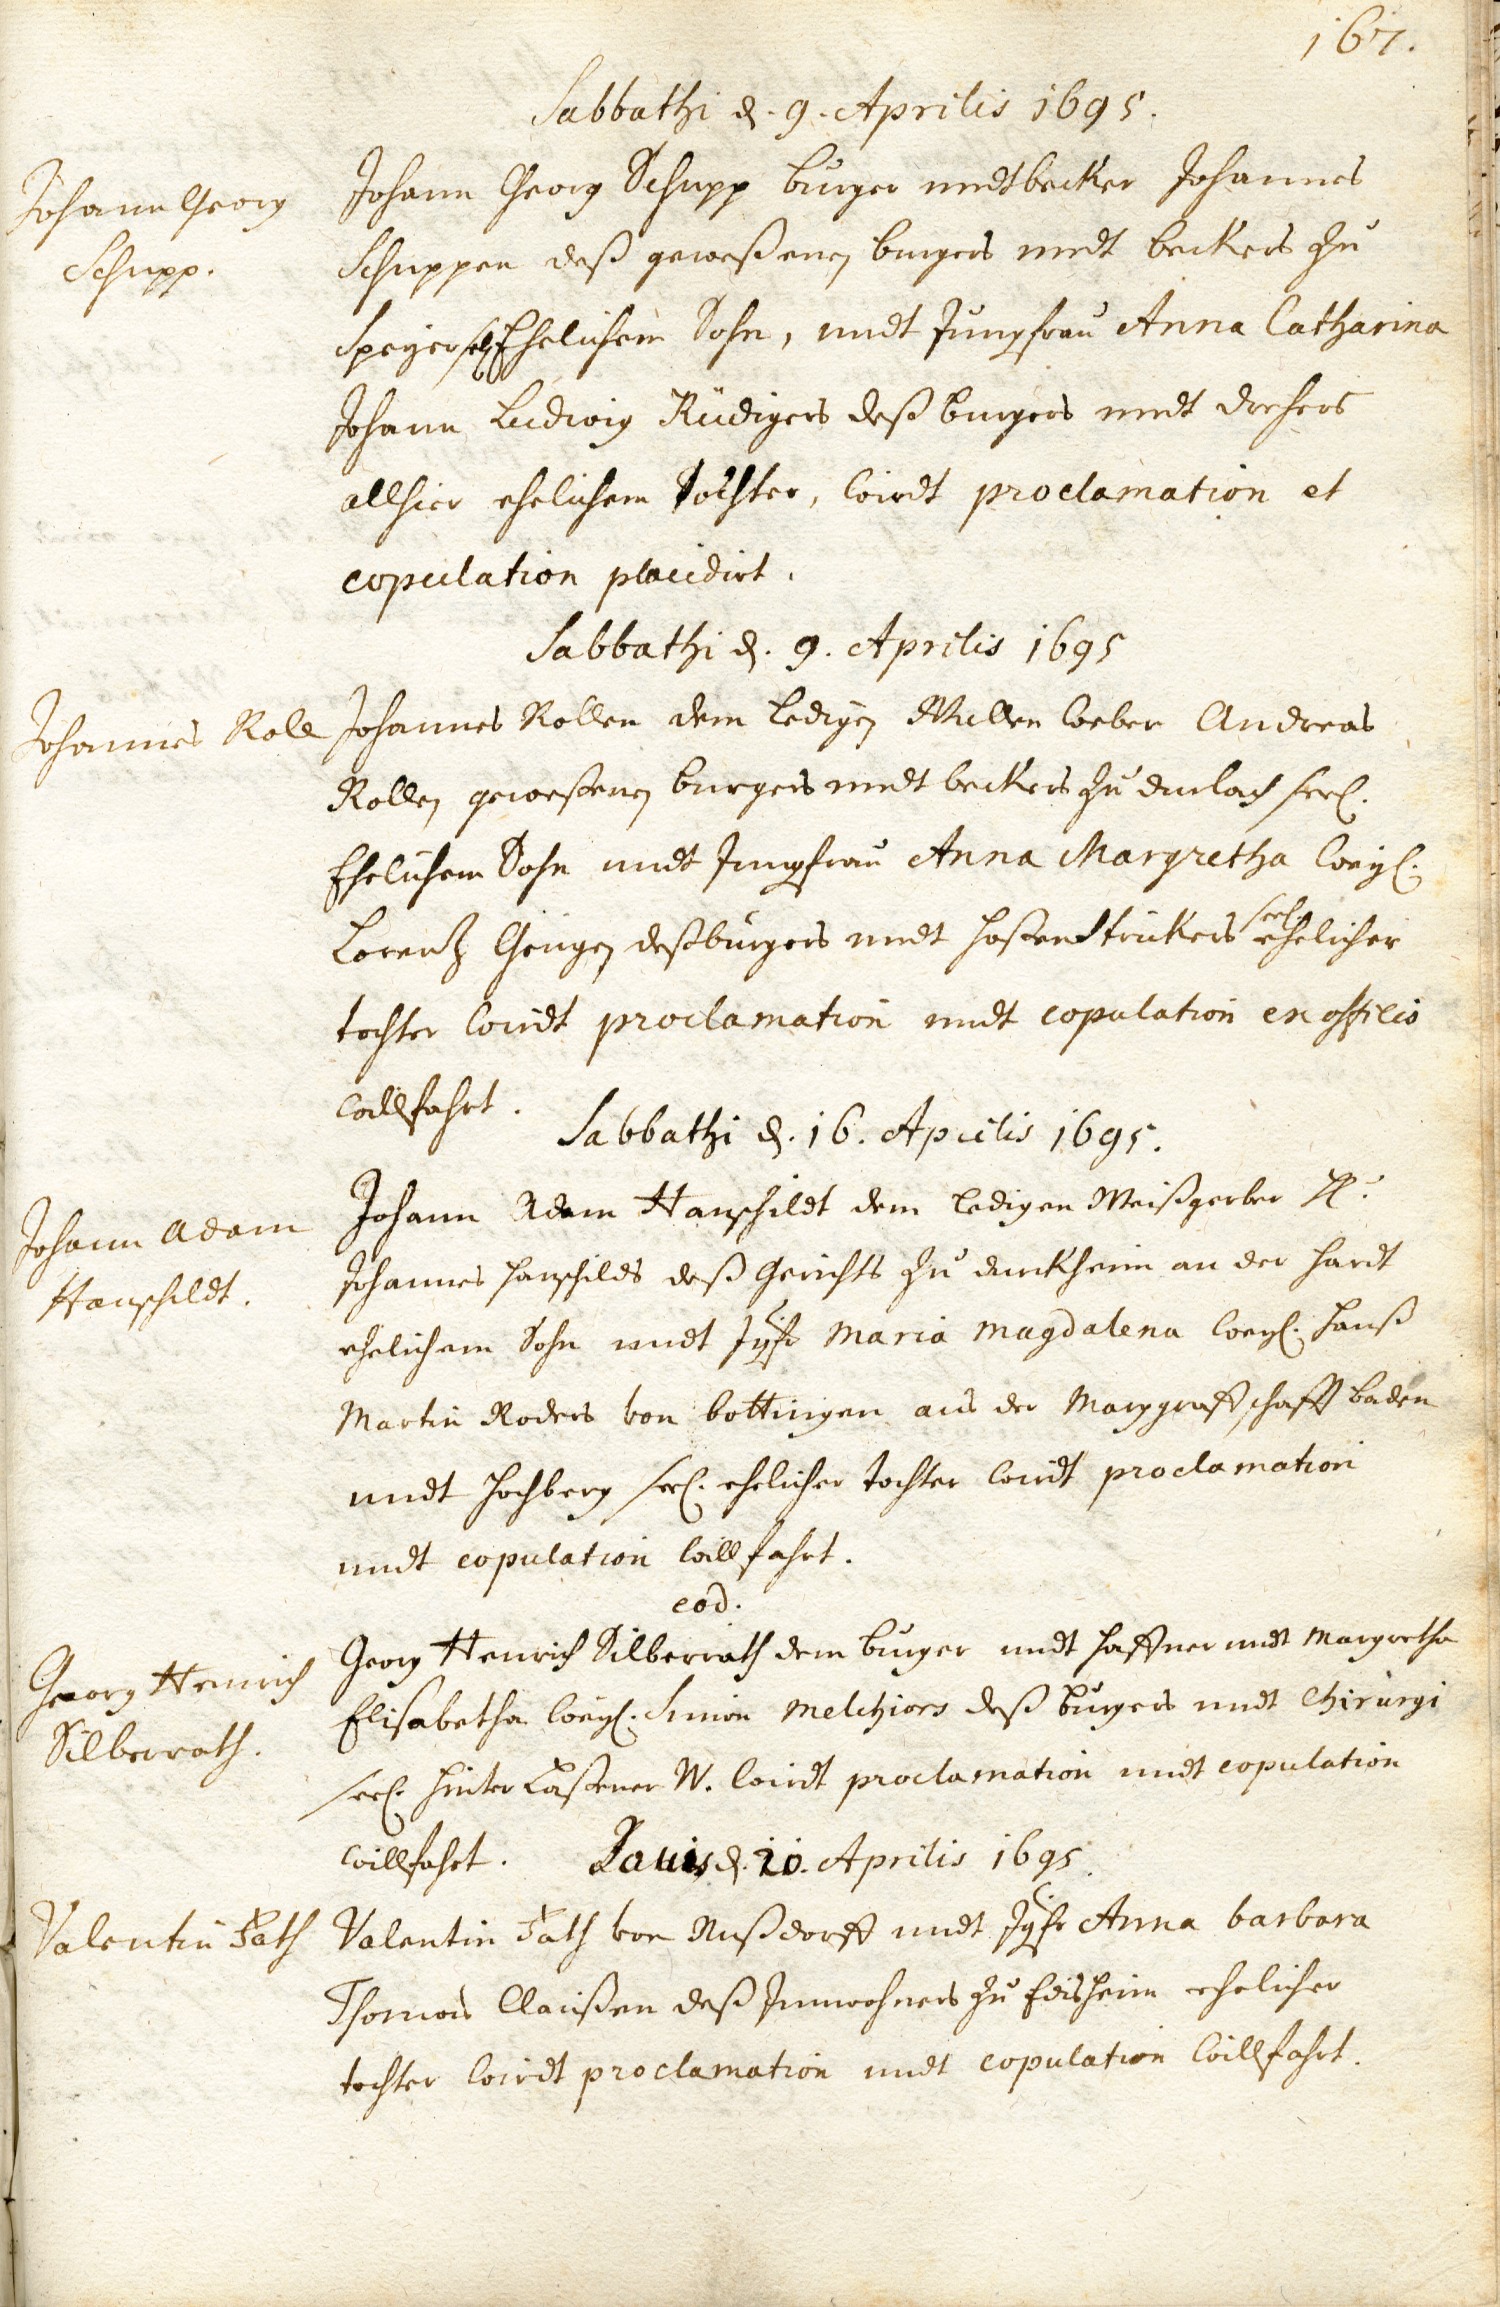 167.
Sabbathi d. 9. Aprilis 1695.
Johann Georg
Schupp.
Johann Georg Schupp burger undt becker Johannes
Schuppen deß geweßenen burgers undt beckers zu
Speyer seel. Ehelichem Sohn, undt Jungfrau Anna Catharina
Johann Ludwig Rüdigers deß burgers undt drehers
allhier ehelichem Tochter, wirdt proclamation et
copulation placidirt.
Sabbathi d. 9. Aprilis 1695
Johannes Roll
Johannes Rollen dem ledigen Wullen weber Andreas
Rollen geweßenen burgers undt beckers zu durlach seel.
Ehelichem Sohn undt Jungfrau Anna Margretha weyl.
Lorentz Gengen deß burgers undt hoßenstrickers seel. ehelicher
tochter wirdt proclamation undt copulation ex officio
willfahrt.
Sabbathi d. 16. Aprilis 1695.
Johann Adam
Hauschildt.
Johann Adam Hauschildt dem ledigen Weißgerber
Johannes hauschilds deß Gerichts zu durckheim an der hardt
ehelichem Sohn undt Jgfr Maria Magdalena weyl. hanß
Martin Roders von bottingen aus der Marggraffschafft baden
undt hochberg seel. ehelicher tochter wirdt proclamation
undt copulation willfahrt.
eod.
Georg Henrich
Silberrath.
Georg Henrich Silberrath dem burger undt haffner undt Margretha
Elisabetha weyl. Simon Melchiors deß burgers undt Chirurgi
seel. hinterlaßener W. wirdt proclamation undt copulation
willfahrt.
d. 20. Aprilis 1695.
Valentin Fath
Valentin Fath von Nußdorff undt Jgfr Anna barbara
Thomas Claußen deß Innwohners zu Edisheim ehelicher
tochter wirdt proclamation undt copulation willfahrt.